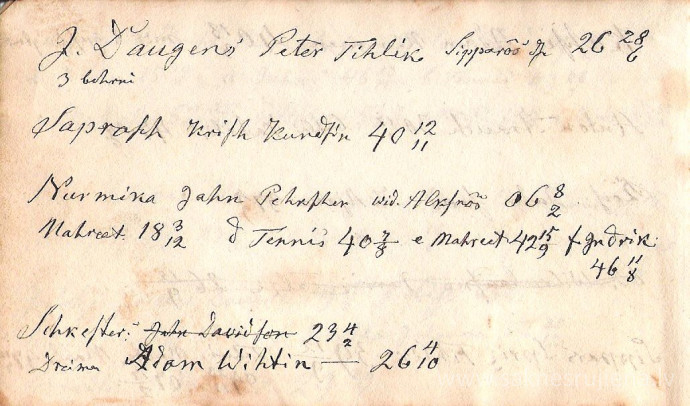 J. Daugens Peter Tihlik Sipparôs dz. 26 28/6
3 behrni
Saprasch Krish Kundsin 40 12/11
Nurmika Jahn Pehrsher wid. Alksnôs 06 8/2
Mahreet 18 3/12 d Tennis 40 7/3 e Mahreet 42 15/9 f Indrik
46 11/8
Schkester: Jahn Davidson 23 4/2
Adam Wihtin — 26 4/10